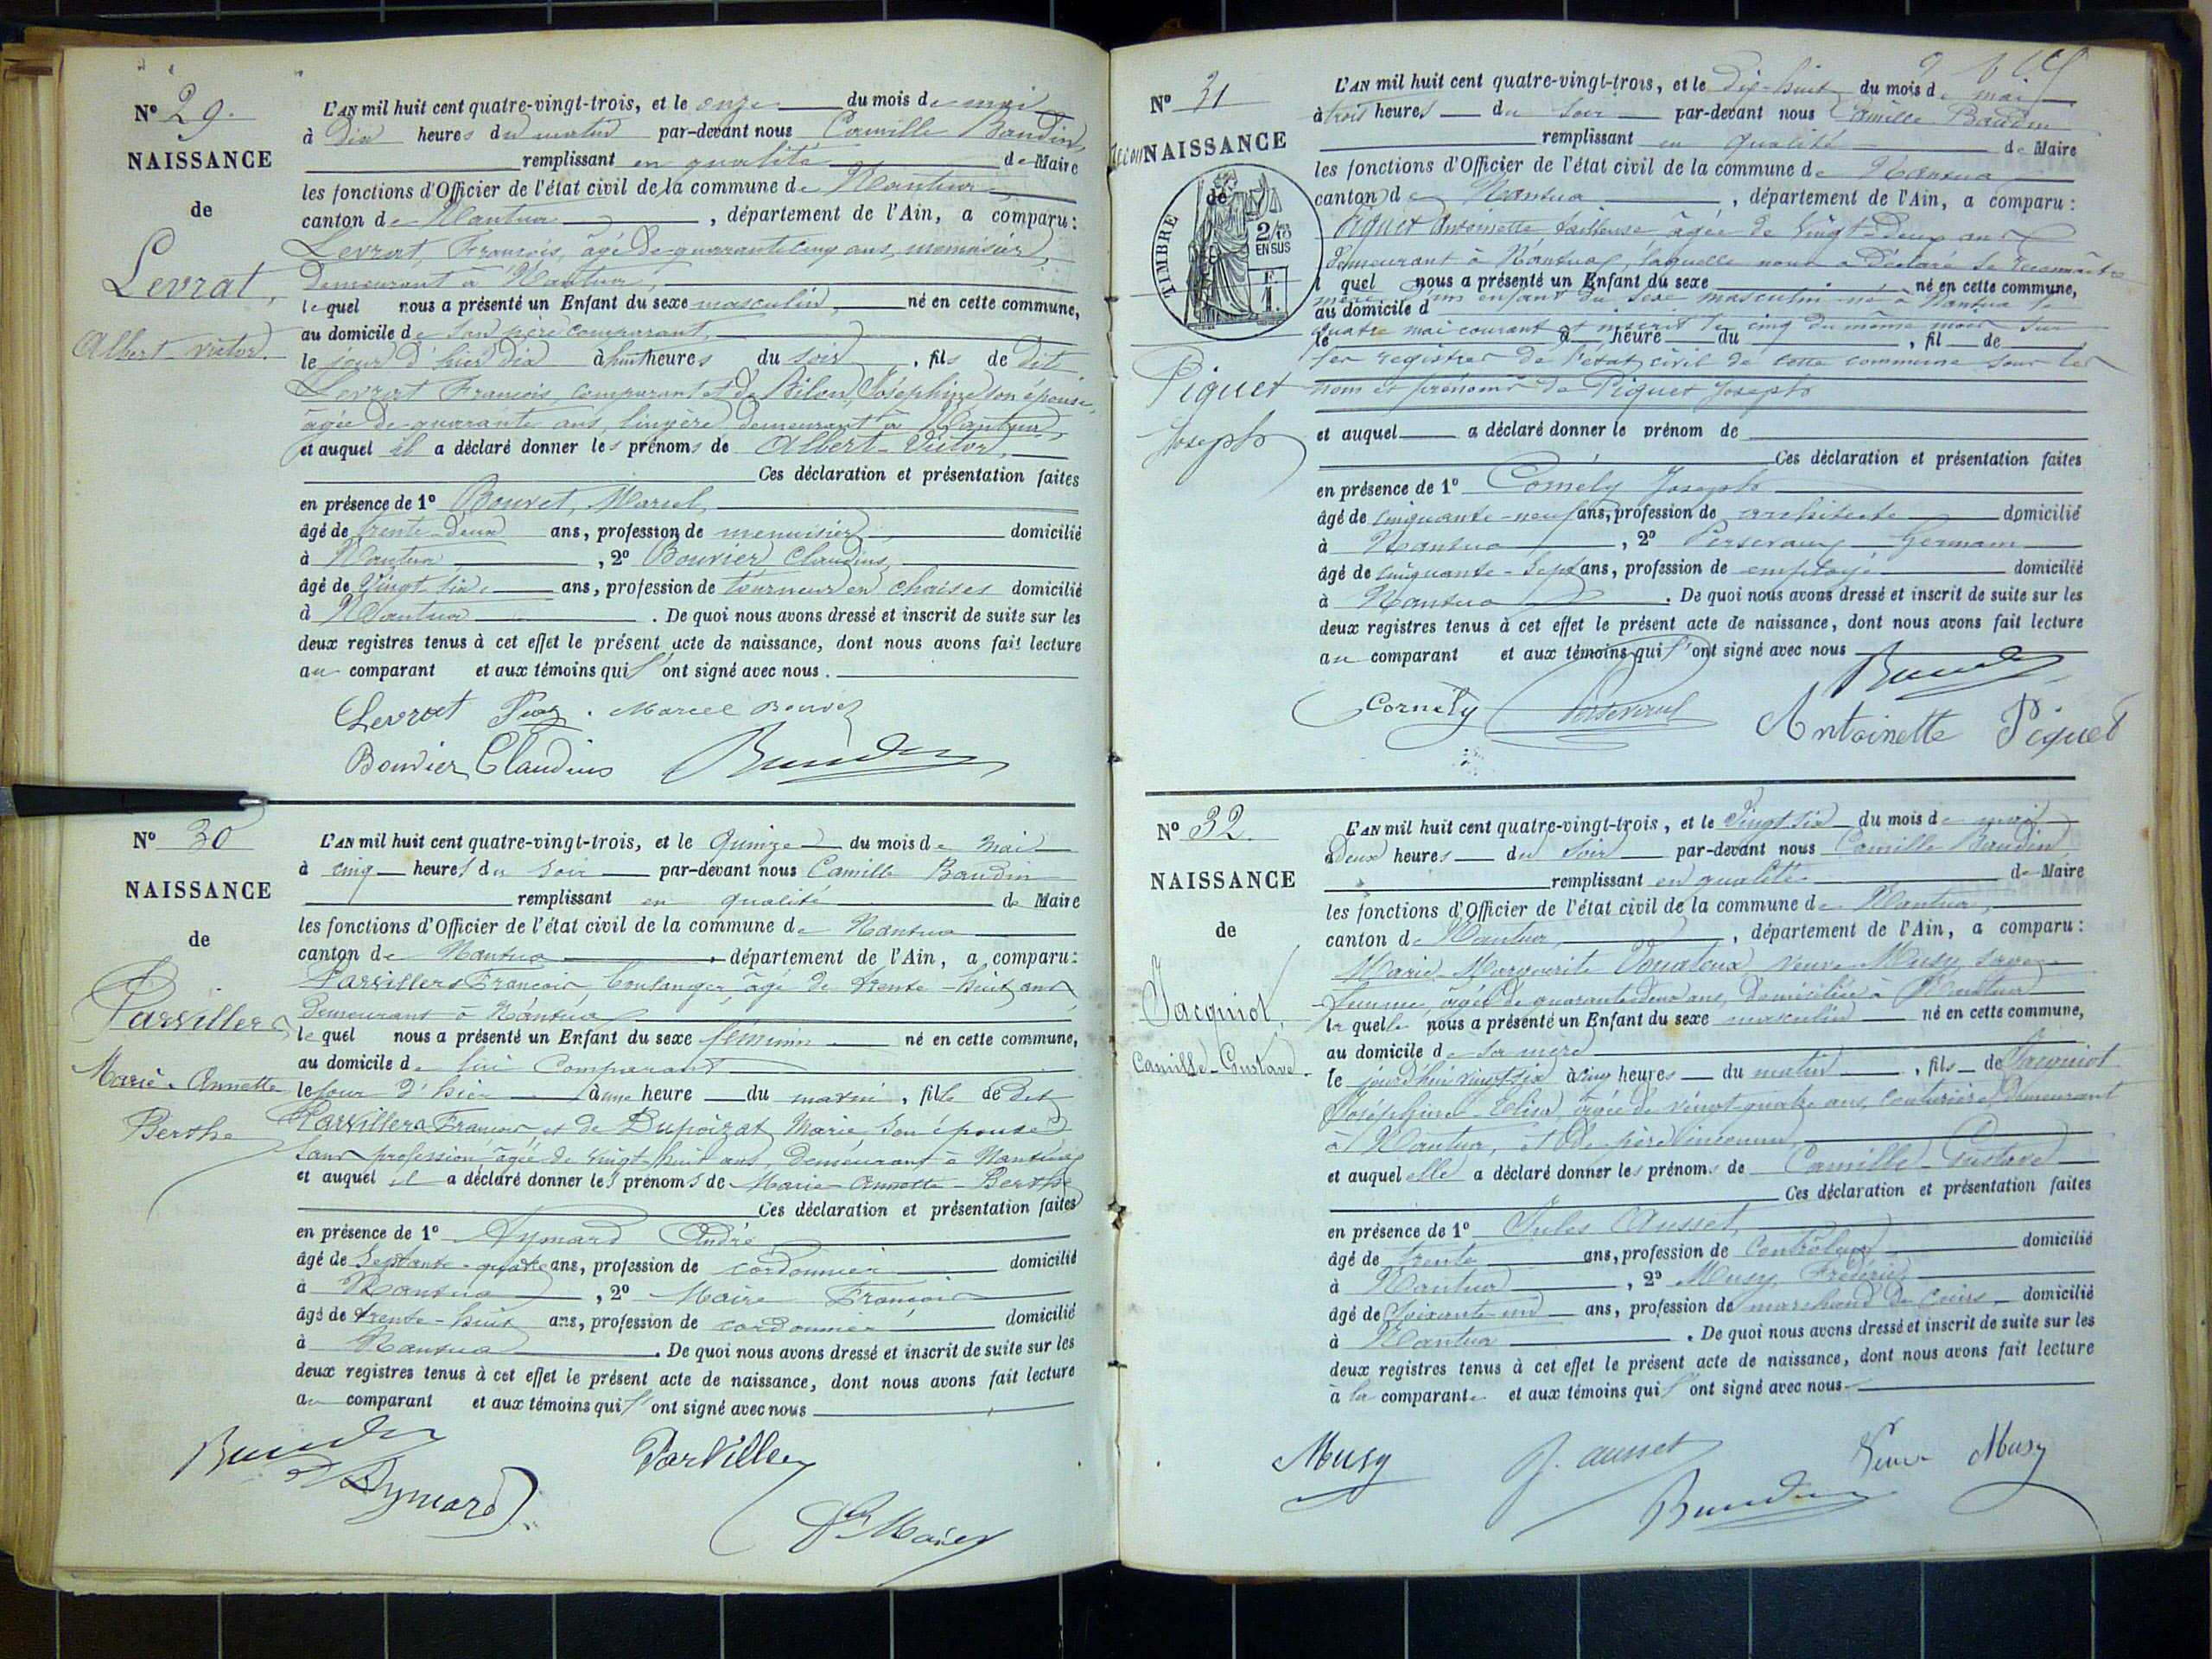 Nº 29.
NAISSANCE
de
Levrat,
Albert-Victor.
L'AN mil huit cent quatre-vingt-trois, et le onze du mois de mai
à Dix heures du matin par-devant nous Camille Baudin,
remplissant en qualité de Maire
les fonctions d'Officier de l'état civil de la commune de Nantua,
canton de Nantua, département de l'Ain, a comparu:
Levrat, François, âgé de quarante cinq ans, menuisier,
demeurant à Nantua,
lequel nous a présenté un Enfant du sexe masculin, né en cette commune,
au domicile de son père comparant,
le jour d'hier dix à huit heures du soir, fils de dit
Levrat François, comparant et de Bilon, Joséphine son épouse,
âgée de quarante ans, lingère, demeurant à Nantua,
et auquel il a déclaré donner les prénoms de Albert-Victor,
Ces déclaration et présentation faites
en présence de 1º Bouvet, Marcel,
âgé de trente-deux ans, profession de menuisier, domicilié
à Nantua, 2º Bouvier Claudius,
âgé de vingt six ans, profession de tourneur en chaises domicilié
à Nantua. De quoi nous avons dressé et inscrit de suite sur les
deux registres tenus à cet effet le présent acte de naissance, dont nous avons fait lecture
au comparant et aux témoins qui l'ont signé avec nous.
Levrat Marcel Bouvet
Bouvier Claudius Baudin
Nº 30
NAISSANCE
de
Parvillers
Marie-Annette
Berthe
L'AN mil huit cent quatre-vingt-trois, et le Quinze du mois de mai
à cinq heures du soir par-devant nous Camille Baudin
remplissant en qualité de Maire
les fonctions d'Officier de l'état civil de la commune de Nantua
canton de Nantua département de l'Ain, a comparu:
Parvillers François boulanger âgé de trente-huit ans
demeurant à Nantua
lequel nous a présenté un Enfant du sexe féminin né en cette commune,
au domicile de lui comparant
le jour d'hier à une heure du matin, fille de dit
Parvillers François et de Dupoizat Marie, son épouse
sans profession âgée de vingt-huit ans, demeurant à Nantua
et auquel il a déclaré donner les prénoms de Marie-Annette-Berthe
Ces déclaration et présentation faites
en présence de 1º Aymard André
âgé de septante-quatre ans, profession de cordonnier domicilié
à Nantua, 2º Maire François
âgé de trente-huit ans, profession de cordonnier domicilié
à Nantua. De quoi nous avons dressé et inscrit de suite sur les
deux registres tenus à cet effet le présent acte de naissance, dont nous avons fait lecture
au comparant et aux témoins qui l'ont signé avec nous
Baudin Parviller
Aymard
Maire
Nº 31
NAISSANCE
de
TIMBRE
2/10 EN SUS
Piquet
Joseph
L'AN mil huit cent quatre-vingt-trois, et le Dix-huit du mois de mai
à trois heures du soir par-devant nous Camille Baudin
remplissant en qualité de Maire
les fonctions d'Officier de l'état civil de la commune de Nantua
canton de Nantua, département de l'Ain, a comparu:
Piquet Antoinette tailleuse âgée de vingt-deux ans
demeurant à Nantua, laquelle nous a déclaré se reconnaître
l quel nous a présenté un Enfant du sexe né en cette commune,
mère d'un enfant du sexe masculin né à Nantua le
au domicile d
quatre mai courant et inscrit le cinq du même mois sur
le à heure du, fil de
les registres de l'état civil de cette commune sous les
nom et prénoms de Piquet Joseph
et auquel a déclaré donner le prénom de
Ces déclaration et présentation faites
en présence de 1º Cornély Joseph
âgé de cinquante-neuf ans, profession de architecte domicilié
à Nantua, 2º Germain
âgé de cinquante-sept ans, profession de employé domicilié
à Nantua. De quoi nous avons dressé et inscrit de suite sur les
deux registres tenus à cet effet le présent acte de naissance, dont nous avons fait lecture
au comparant et aux témoins qui l'ont signé avec nous
Baudin
Cornély Antoinette Piquet
Nº 32.
NAISSANCE
de
Jacquiot,
Camille-Gustave.
L'AN mil huit cent quatre-vingt-trois, et le Vingt six du mois de mai
à deux heures du soir par-devant nous Camille Baudin
remplissant en qualité de Maire
les fonctions d'Officier de l'état civil de la commune de Nantua,
canton de Nantua, département de l'Ain, a comparu:
Marie-Marguerite veuve Musy, sage-
femme, âgée de quarante deux ans, domiciliée à Nantua
laquelle nous a présenté un Enfant du sexe masculin né en cette commune,
au domicile de sa mère
le jourd'hui vingt six à cinq heures du matin, fils de Jacquiot
Joséphine-Elisa, âgée de vingt-quatre ans, couturière, demeurant
à Nantua, et de père inconnu,
et auquel elle a déclaré donner les prénoms de Camille-Gustave
Ces déclaration et présentation faites
en présence de 1º Jules Ausset,
âgé de trente ans, profession de Contrôleur, domicilié
à Nantua, 2º Musy, Frédéric,
âgé de soixante-un ans, profession de marchand de cuirs domicilié
à Nantua. De quoi nous avons dressé et inscrit de suite sur les
deux registres tenus à cet effet le présent acte de naissance, dont nous avons fait lecture
à la comparante et aux témoins qui l'ont signé avec nous
Musy J. Ausset Veuve Musy
Baudin